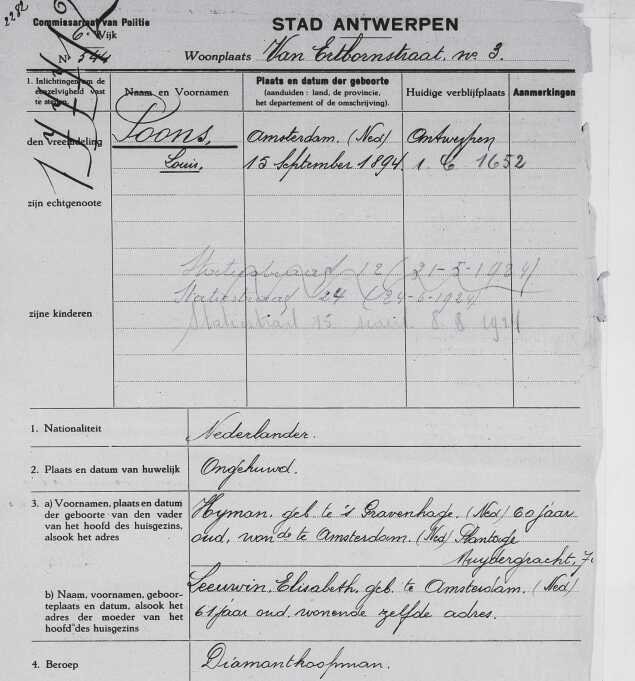 2282
Commissariaat van Politie
6e Wijk
Nr 544
STAD ANTWERPEN
Woonplaats Van Ertbornstraat, no 3.
1. Inlichtingen om de eenzelvigheid vast te stellen.
Naam en Voornamen
Plaats en datum der geboorte
(aanduiden : land, de provincie,
het departement of de omschrijving).
Huidige verblijfplaats
Aanmerkingen
den vreemdeling
Loons,
Amsterdam. (Ned)
Antwerpen
Louis,
15 September 1894.
1. C 1652
zijn echtgenoote
Statiestraat 12 (21-5-1924)
Statiestraat 24 (24-6-1924)
Statiestraat 15 8 8 1924
zijne kinderen
1. Nationaliteit
Nederlander.
2. Plaats en datum van huwelijk
Ongehuwd.
3. a) Voornamen, plaats en datum
der geboorte van den vader
van het hoofd des huisgezins,
alsook het adres
Hyman, geb. te 's Gravenhage. (Ned) 60 jaar
oud, wonde te Amsterdam. (Ned) Plantage
Muydergracht, 7
b) Naam, voornamen, geboor-
teplaats en datum, alsook het
adres der moeder van het
hoofd des huisgezins
Leeuwin, Elisabeth, geb. te Amsterdam. (Ned)
61 jaar oud, wonende zelfde adres.
4. Beroep
Diamantkoopman.